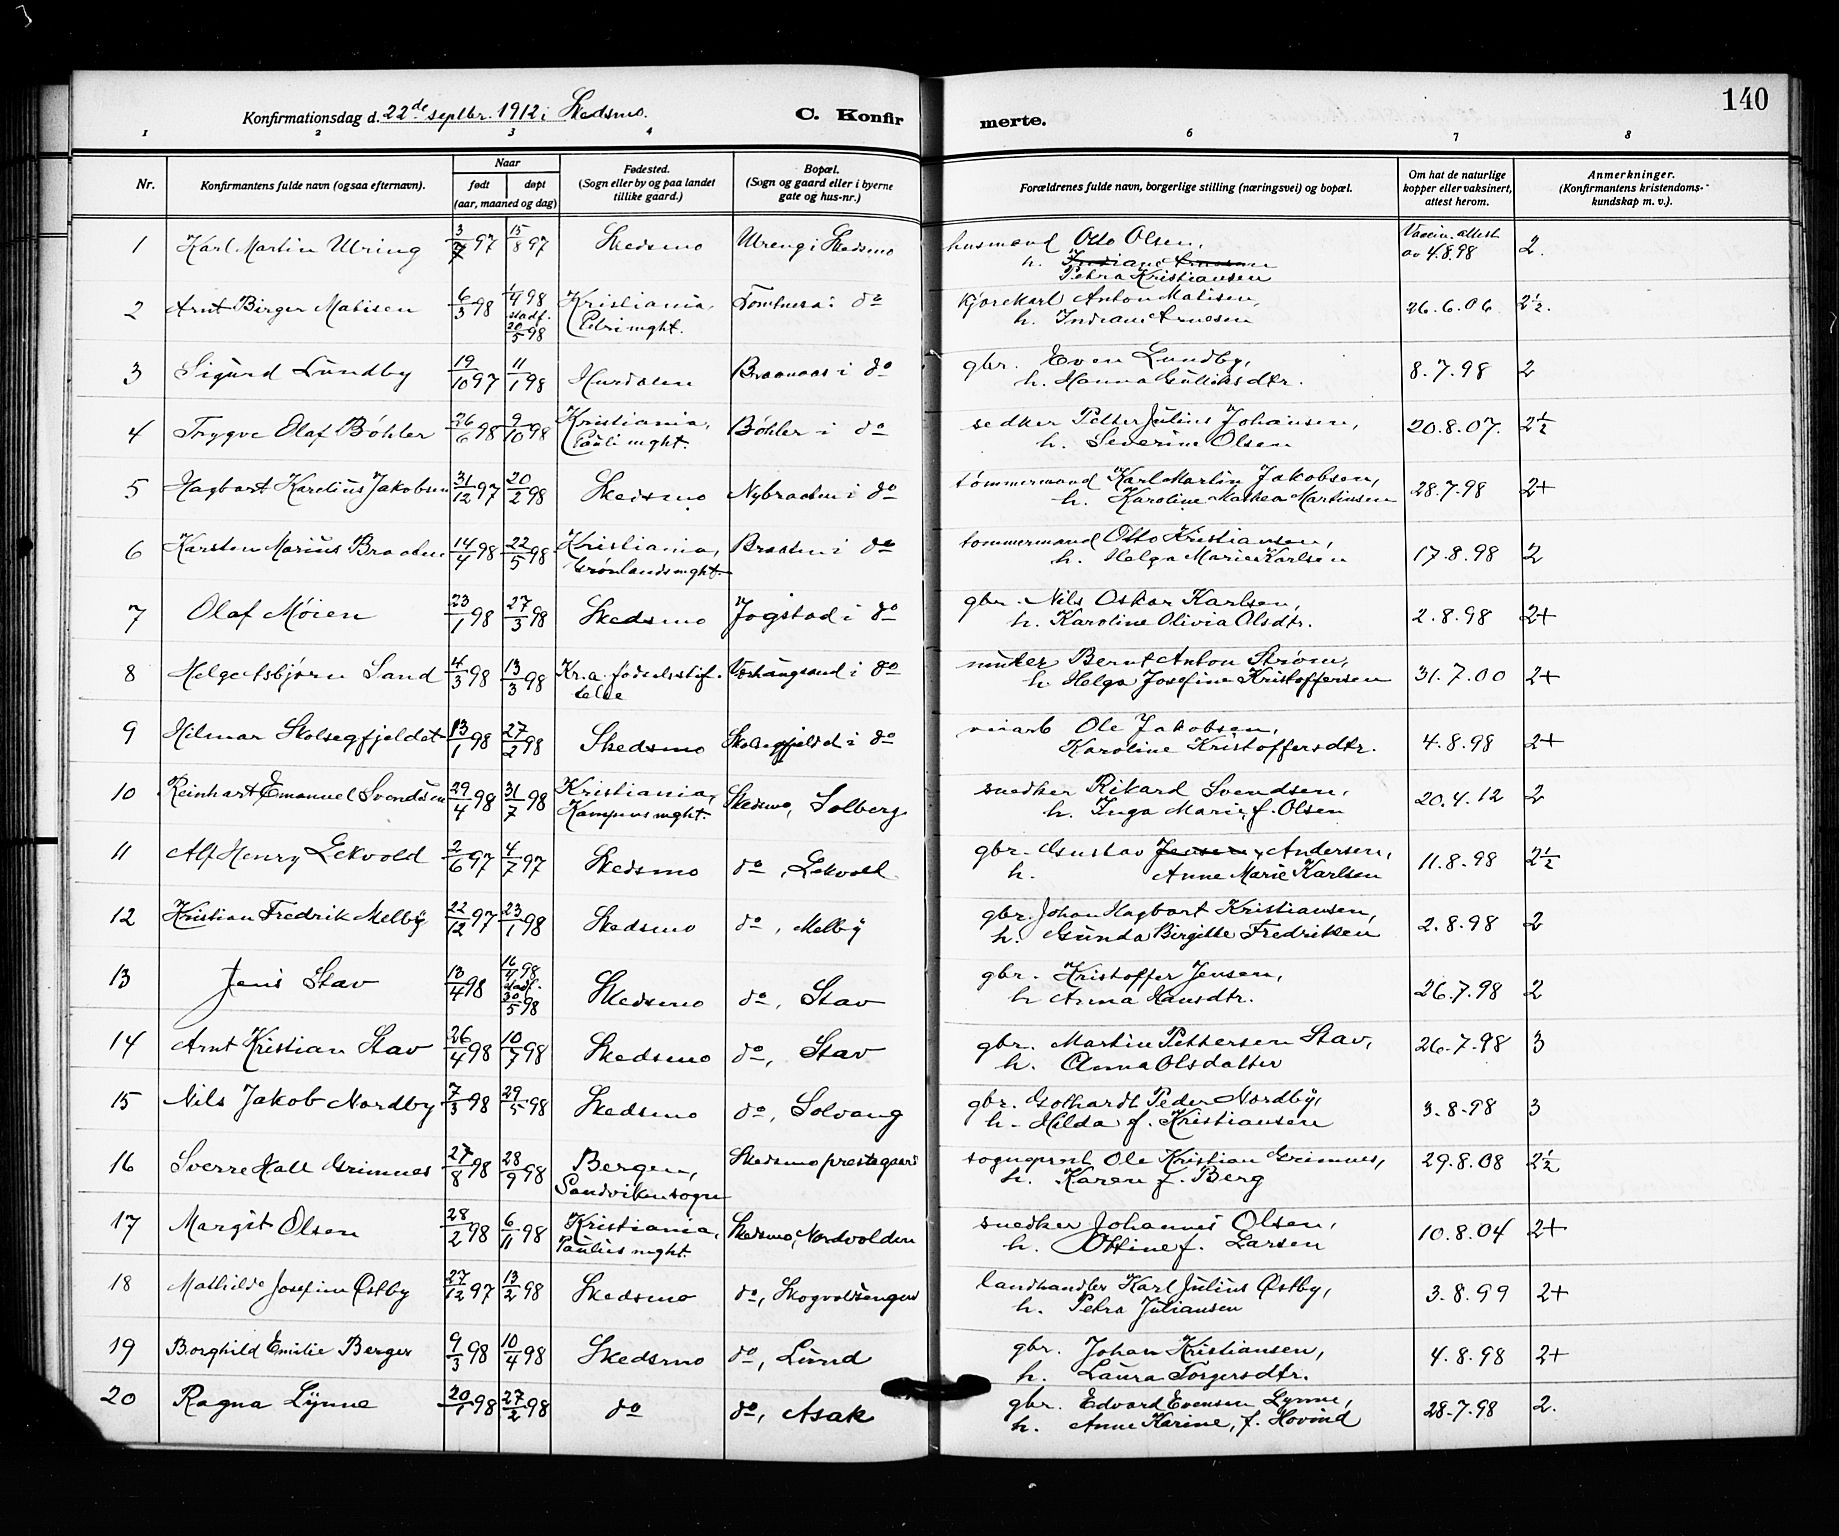 140
Konfirmationsdag d. 22de septbr. 1912 i Skedsmo. C. Konfirmerte.
1 2 3 4 6 7 8
Nr. Konfirmantens fulde navn (ogsaa efternavn). Naar født døpt (aar, maaned og dag) Fødested. (Sogn eller by og paa landet tillike gaard.) Bopæl. (Sogn og gaard eller i byerne gate og hus-nr.) Forældrenes fulde navn, borgerlige stilling (næringsvei) og bopæl. Om hat de naturlige kopper eller vaksinert, attest herom. Anmerkninger. (Konfirmantens kristendomskundskap m. v.).
1 Karl Martin Ulring 3/7 97 15/8 97 Skedsmo Ulreng i Skedsmo husmand Otto Olsen, Vaccin. attest av 4.8.98 2.
h. Petra Kristiansen
2 Arnt Birger Matisen 6/3 98 1/4 98 stadf. 20/5 98 Kristiania, Petri mght. do kjørekarl Anton Matisen, 26.6.06 2½.
h. Indiane Arnesen
3 Sigurd Lundby 19/10 97 11/1 98 Hurdalen Braanaas i do gbr. Even Lundby, 8.7.98 2
h. Hanna Gulliksdtr.
4 Trygve Olaf Bøhler 26/6 98 9/10 98 Kristiania, Pauli mght. Bøhler i do sedker Petter Julius Johansen, 20.8.07. 2½
h. Severine Olsen
5 Hagbart Karelius Jakobsen 31/12 97 20/2 98 Skedsmo Nybraaten i do tømmermand Karl Martin Jakobsen, 28.7.98 2+
h. Karoline Mathea Martinsen
6 Karsten Marius Braaten 14/4 98 22/5 98 Kristiania, Grønlands mght. Braaten i do tømmermand Otto Kristiansen, 17.8.98 2
h. Helga Marie Karlsen
7 Olaf Møien 23/1 98 27/3 98 Skedsmo Jogstad i do gbr. Nils Oskar Karlsen, 2.8.98 2+
h. Karoline Olivia Olsdtr.
8 Helge Asbjørn Sand 4/3 98 13/3 98 Kr.a. fødselsstiftelse i do Bernt Anton Strøm, 31.7.00 2+
h. Helga Josefine Kristoffersen
9 Hilmar Skolsegfjeldet 13/1 98 27/2 98 Skedsmo Skolsegfjeldet i do Ole Jakobsen, 4.8.98 2+
Karoline Kristoffersdtr.
10 Reinhart Emanuel Svendsen 29/4 98 31/7 98 Kristiania, Kampens mght. Skedsmo, Solberg snedker Rikard Svendsen, 20.4.12 2
h. Inga Marie f. Olsen
11 Alf Henry Lekvold 2/6 97 4/7 97 Skedsmo do, Lekvold gbr. Gustav Jensen, Andersen, 11.8.98 2½
h. Anne Marie Karlsen
12 Kristian Fredrik Melby 22/12 97 23/1 98 Skedsmo do, Melby gbr. Johan Hagbart Kristiansen, 2.8.98 2
h. Gunda Birgitte Fredriksen
13 Jens Stav 13/4 98 16/4 98 stadf. 30/5 98 Skedsmo do, Stav gbr. Kristoffer Jensen, 26.7.98 2
h Anna Hansdtr.
14 Arnt Kristian Stav 26/4 98 10/7 98 Skedsmo do, Stav gbr. Martin Pettersen Stav, 26.7.98 3
h. Anna Olsdatter
15 Nils Jakob Nordby 7/3 98 29/5 98 Skedsmo do, Solvang gbr. Gothardt Peder Nordby, 3.8.98 3
h. Hilda f. Kristiansen
16 Sverre Hall Grimnes 27/8 98 28/9 98 Bergen, Sandviken sogn Skedsmo prestegaard sogneprest Ole Kristian Grimnes, 29.8.08 2½
h. Karen f. Berg
17 Margit Olsen 28/2 98 6/11 98 Kristiania, Paulus mght. Skedsmo, Nordvolden snedker Johannes Olsen, 10.8.04 2+
h. Ottine f. Larsen
18 Mathilde Josefine Østby 27/12 97 13/2 98 Skedsmo do, Skogvoldsengen landhandler Karl Julius Østby, 3.8.99 2+
h. Petra Juliansen
19 Borghild Emilie Berger 9/3 98 10/4 98 Skedsmo do, Lund gbr. Johan Kristiansen, 4.8.98 2+
h. Laura Torgersdtr.
20 Ragna Lynne 20/1 98 27/2 98 do do, Asak gbr. Edvard Evensen Lynne, 28.7.98 2.
h. Anne Karine, f. Hovind